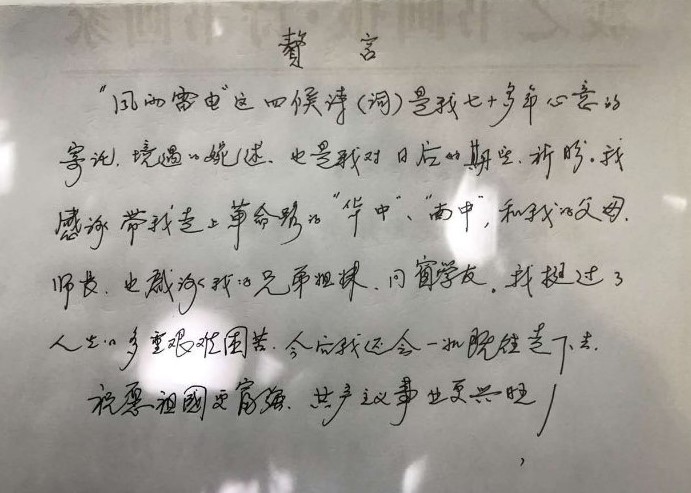 赘言
"风雨雷电"这四候诗(词)是我七十多年心意的
寄托、境遇的婉述、也是我对日后的期望、祈盼。我
感谢带我走上革命路的"华中"、"南中",和我的父母、
师长、也感谢我的兄弟姐妹、同窗学友。我挺过了
人生的多重艰难困苦、今后我还会一如既往走下去、
祝愿祖国更富强、共产主义事业更兴旺!